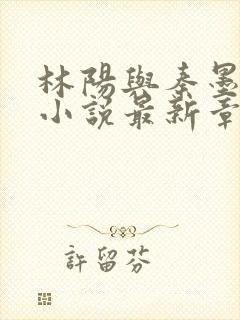 林陽與秦墨
小說最新章
許留芬